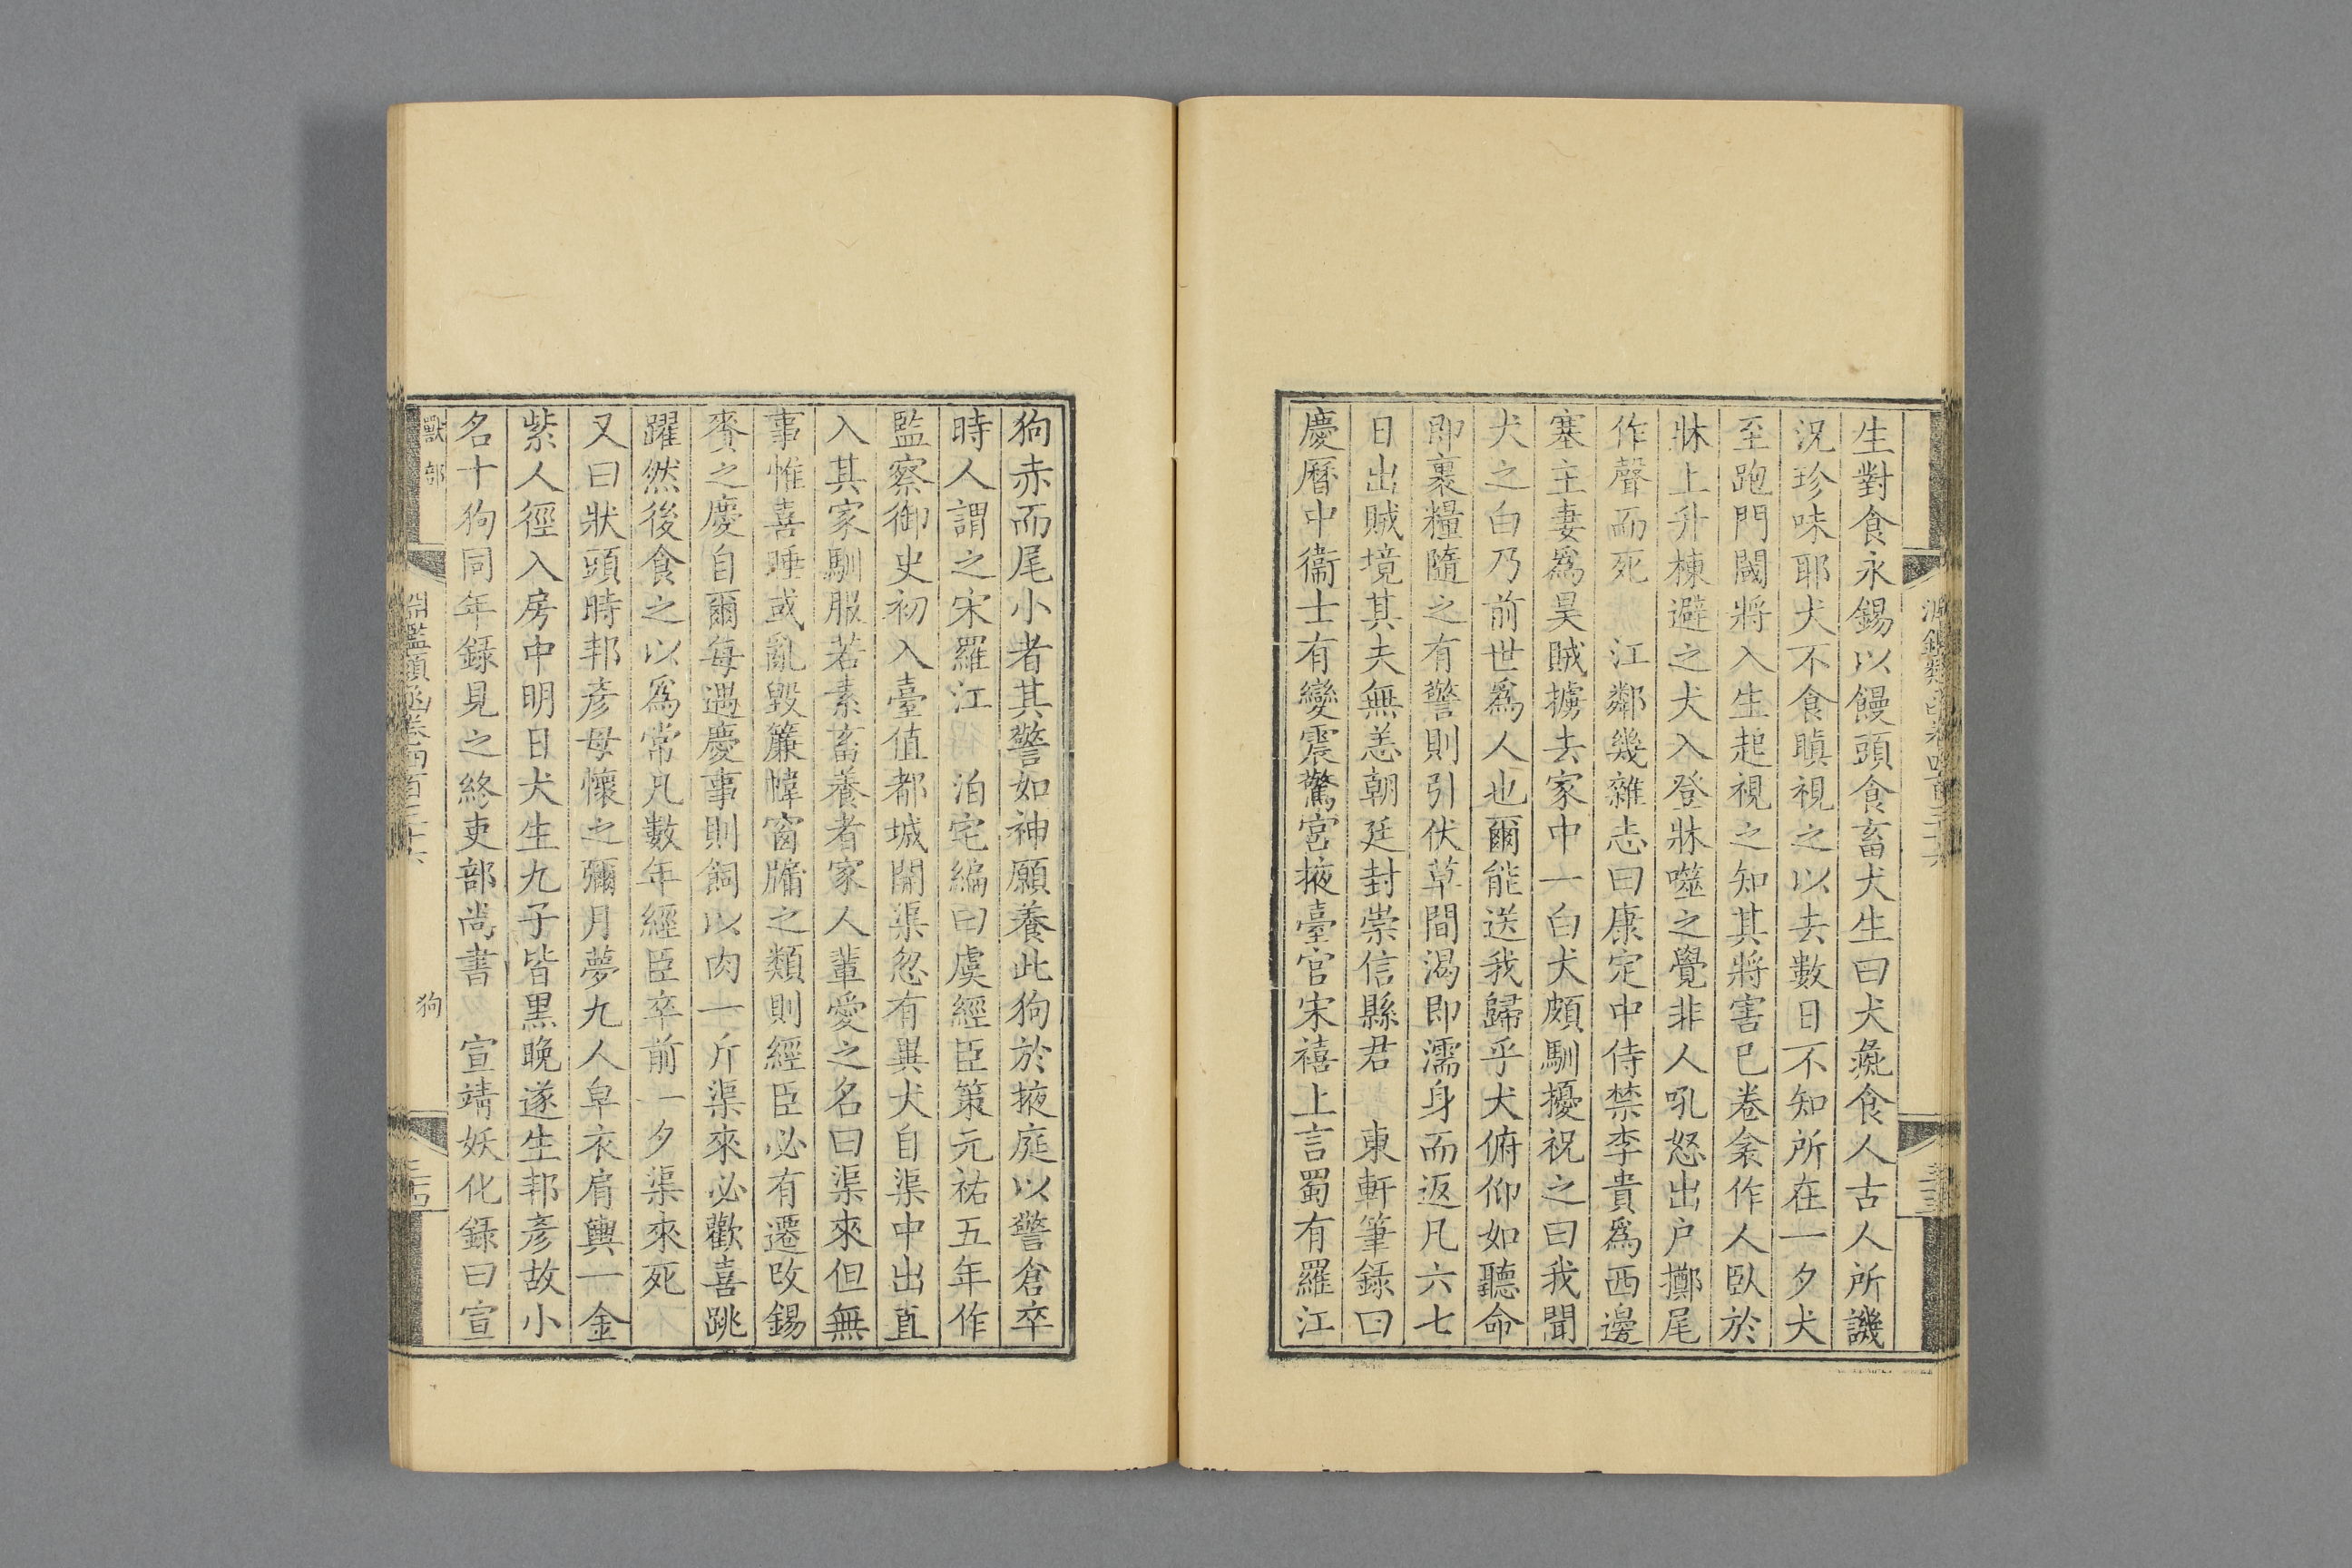 生對食永錫以饅頭食畜犬生曰犬彘食人古人所譏
況珍味耶犬不食瞋視之以去數日不知所在一夕犬
至跑門閾將入生起視之知其將害已卷衾作人臥於
牀上升棟避之犬入登牀噬之覺非人吼怒出户擲尾
作聲而死 江鄰幾雜志曰康定中侍禁李貴爲西邊
塞主妻爲昊賊擄去家中一白犬頗馴擾祝之曰我聞
犬之白乃前世爲人也爾能送我歸乎犬俯仰如聽命
即裹糧隨之有警則引伏草間渴即濡身而返凡六七
日出賊境其夫無恙朝廷封崇信縣君 東軒筆錄曰
慶曆中衞士有變震驚宮掖臺官宋禧上言蜀有羅江
狗赤而尾小者其警如神願養此狗於掖庭以警倉卒
時人謂之宋羅江 泊宅編曰虞經臣策元祐五年作
監察御史初入臺值都城開渠忽有異犬自渠中出直
入其家馴服若素畜養者家人輩愛之名曰渠來但無
事惟喜睡或亂毀簾幃窗牖之類則經臣必有遷改錫
賚之慶自爾每遇慶事則飼以肉一斤渠來必歡喜跳
躍然後食之以爲常凡數年經臣卒前一夕渠來死
又曰狀頭時邦彥母懷之彌月夢九人皁衣肩輿一金
紫人徑入房中明日犬生九子皆黑晚遂生邦彥故小
名十狗同年録見之終吏部尚書 宣靖妖化録曰宣
獸部 淵鑑類函卷四百三十六 狗 三十四